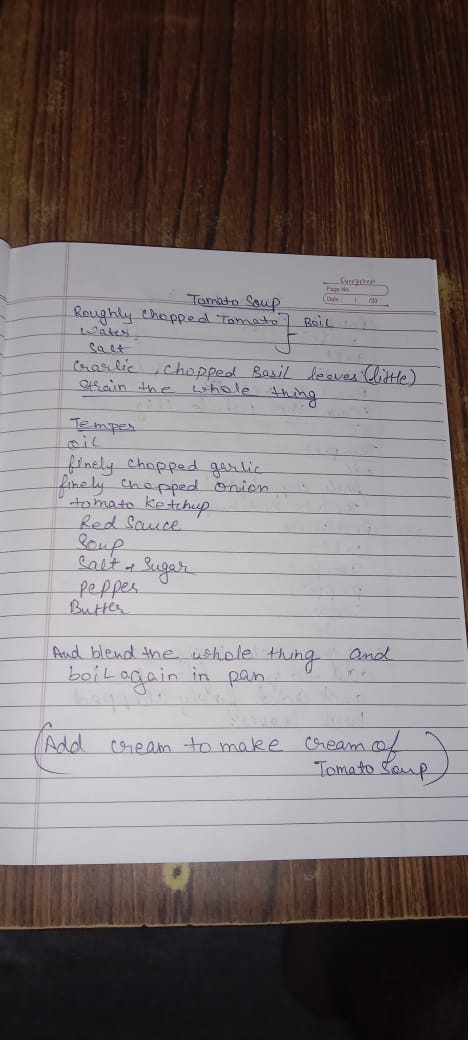 Evergreen
Page No.
Date : / /20
Tomato Soup
Roughly chopped Tomato } Boil
Water
Salt
Garlic, chopped Basil leaves (little)
Strain the whole thing
Temper
oil
finely chopped garlic
finely chopped onion
tomato ketchup
Red Sauce
Soup
Salt + Sugar
pepper
Butter
And blend the whole thing and
boil again in pan
(Add cream to make cream of
Tomato Soup)